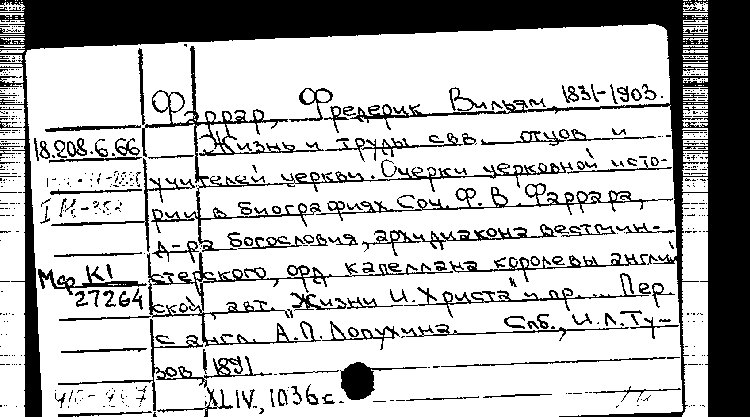 Фаррар, Фредерик Вильям, 1831-1903.
18.208.6.66 Жизнь и труды свв. отцов и
учителей церкви. Очерки церковной исто-
рии в биографиях Соч. Ф. В. Фаррара,
д-ра богословия, архидиакона вестмин-
Мф К1 стерского, орд. капеллана королевы англий
27264 ской, авт. "Жизни И. Христа" и пр. ... Пер.
с англ. А.П. Лопухина. Спб., И.Л. Ту-
зов, 1891.
XLIV, 1036 с.